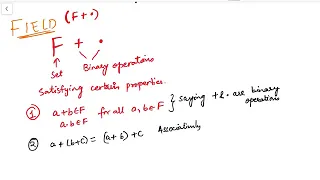 FIELD (F + •)
F + •
Set Binary operations
Satisfying certain properties.
① a+b∈F for all a, b∈F } saying + & • are binary
a•b∈F operations
② a+(b+c) = (a+b)+c Associativity